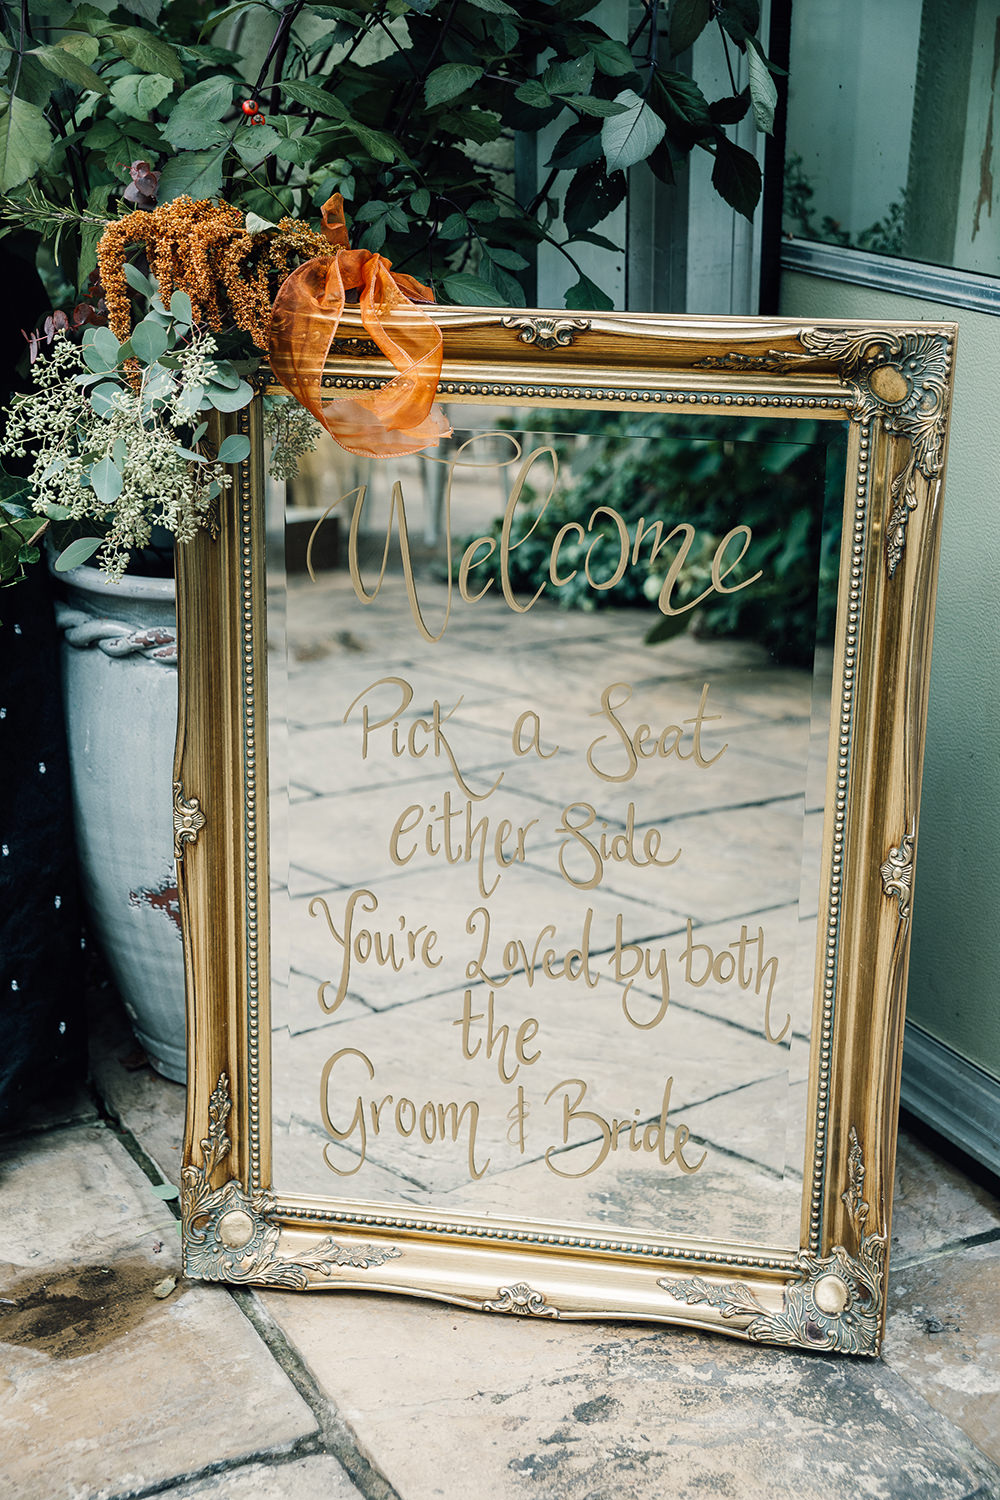 Welcome
Pick a Seat
either Side
You're Loved by both
the
Groom & Bride